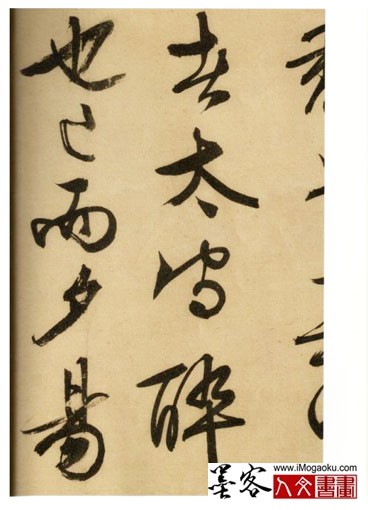 者太守醉
也已而夕陽
墨客
www.iMogaoku.com
人文書畫